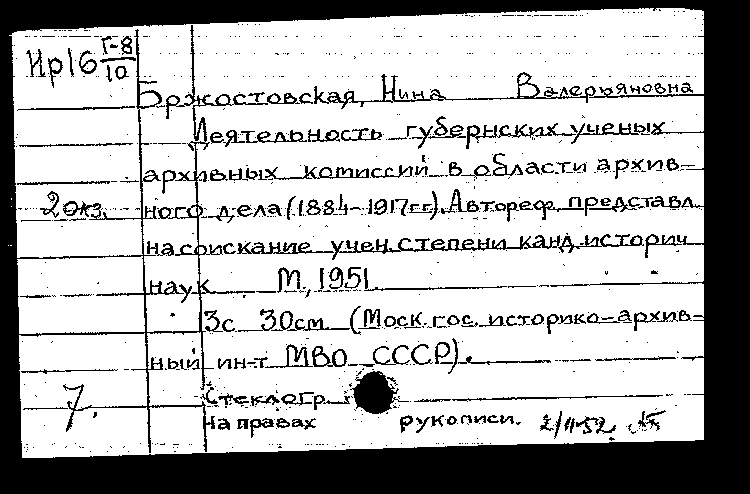 Ир16 Г-8/10
Бржостовская, Нина Валерьяновна
Деятельность губернских ученых
архивных комиссий в области архив-
2 экз. ного дела (1884-1917гг). Автореф. представл.
на соискание учен. степени канд. историч
наук М, 1951
13с 30см (Моск. гос. историко-архив-
ный ин-т МВО СССР).
7. Стеклогр.
На правах рукописи. 2/II-52.